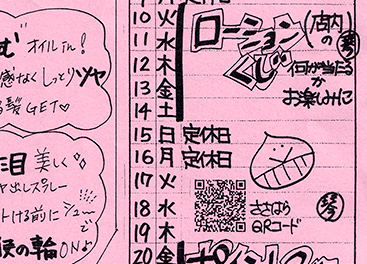 む" オイルin!
感なくしっとりツヤ
髪GET♡
10 火
11 水
12 木
13 金
14 土
ローション
くじ
(店内の)
琴
何が当たる
か
お楽しみに
15 日 定休日
16 月 定休日
17 火
18 水
19 木
20 金
ささはら
QRコード
琴
目 美しく
出しスプレー
ける前にシューッ
で
の輪ONよ